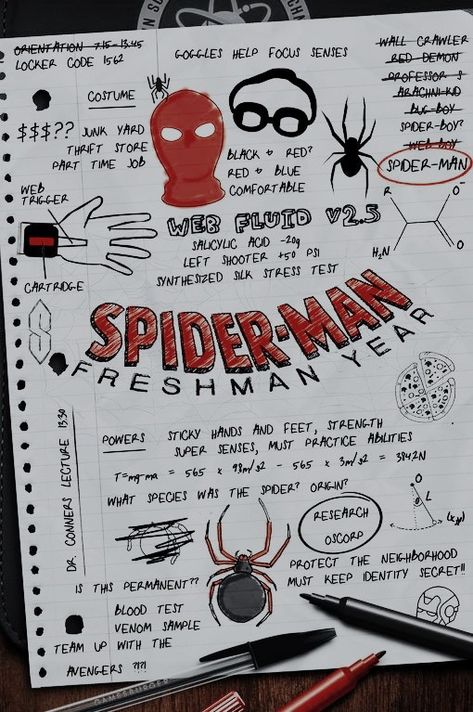 ORIENTATION 7.15 - 13.45
LOCKER CODE 1562
GOGGLES HELP FOCUS SENSES
WALL CRAWLER
RED DEMON
PROFESSOR S
ARACHNI-KID
BUG BOY
SPIDER-BOY?
WEB BOY
SPIDER-MAN
COSTUME
$$$?? JUNK YARD
THRIFT STORE
PART TIME JOB
BLACK + RED?
RED + BLUE
COMFORTABLE
WEB
TRIGGER
CARTRIDGE
WEB FLUID V2.5
SALICYLIC ACID -20g
LEFT SHOOTER +50 PSI
SYNTHESIZED SILK STRESS TEST
R
O
O
H₂N
SPIDER-MAN
FRESHMAN YEAR
DR. CONNERS LECTURE 13:30
POWERS STICKY HANDS AND FEET, STRENGTH
SUPER SENSES, MUST PRACTICE ABILITIES
T=mg-ma = 56.5 × 9.8m/s2 - 56.5 × 3m/s2 = 384.2N
WHAT SPECIES WAS THE SPIDER? ORIGIN?
RESEARCH
OSCORP
O
L
(x,y)
IS THIS PERMANENT??
PROTECT THE NEIGHBORHOOD
MUST KEEP IDENTITY SECRET!!
BLOOD TEST
VENOM SAMPLE
TEAM UP WITH THE
AVENGERS ?!?!